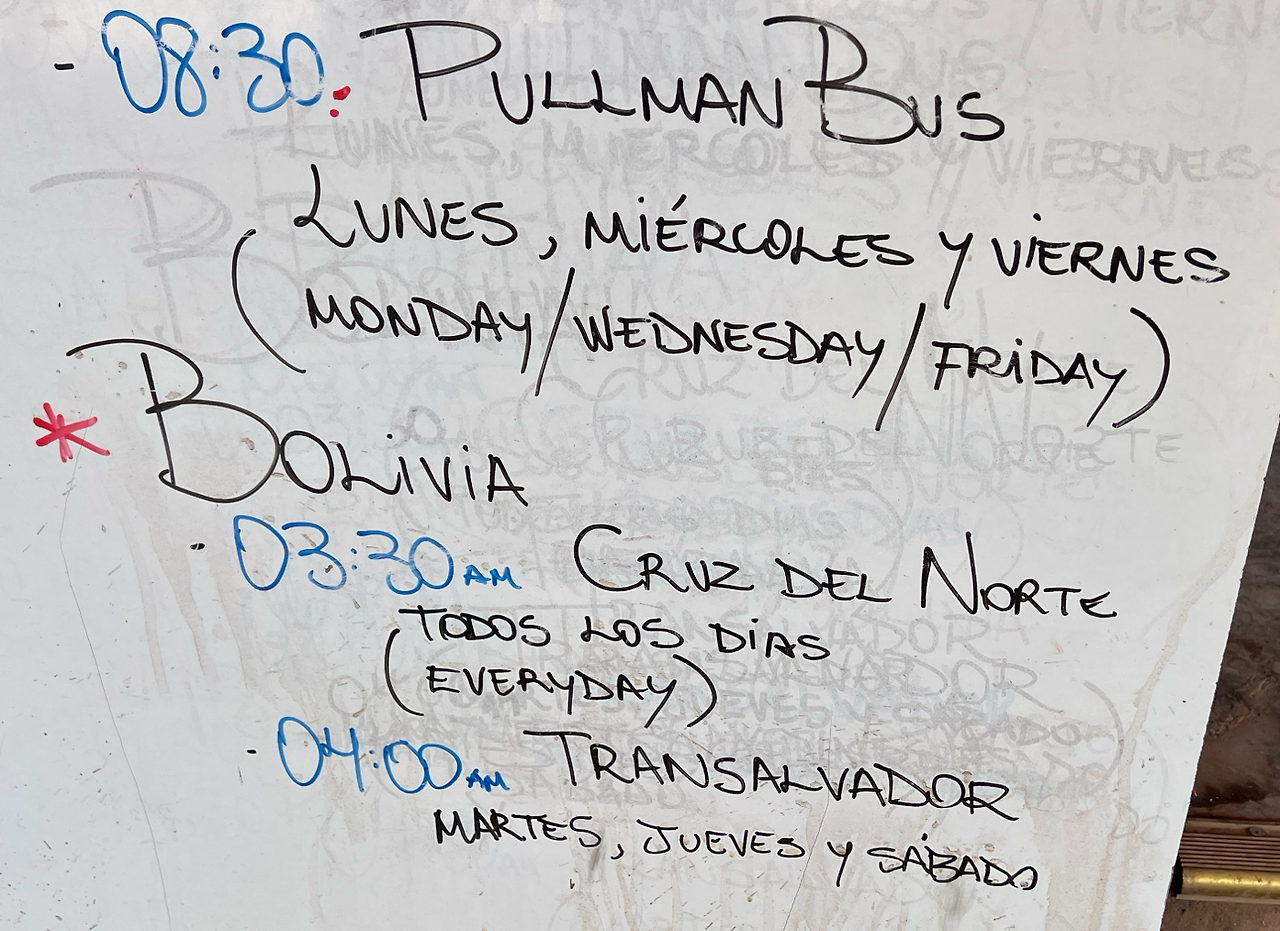 - 08:30: PULLMAN BUS
LUNES, MIÉRCOLES Y VIERNES
(MONDAY/WEDNESDAY/FRIDAY)
* BOLIVIA
- 03:30 AM CRUZ DEL NORTE
TODOS LOS DÍAS
(EVERYDAY)
- 04:00 AM TRANSALVADOR
MARTES, JUEVES Y SÁBADO